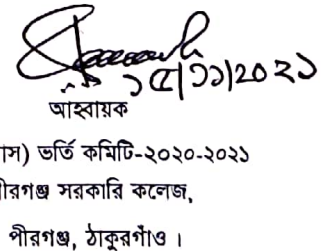 ১৫/১১/২০২১
আহবায়ক
স) ভর্তি কমিটি-২০২০-২০২১
পীরগঞ্জ সরকারি কলেজ,
পীরগঞ্জ, ঠাকুরগাঁও ।